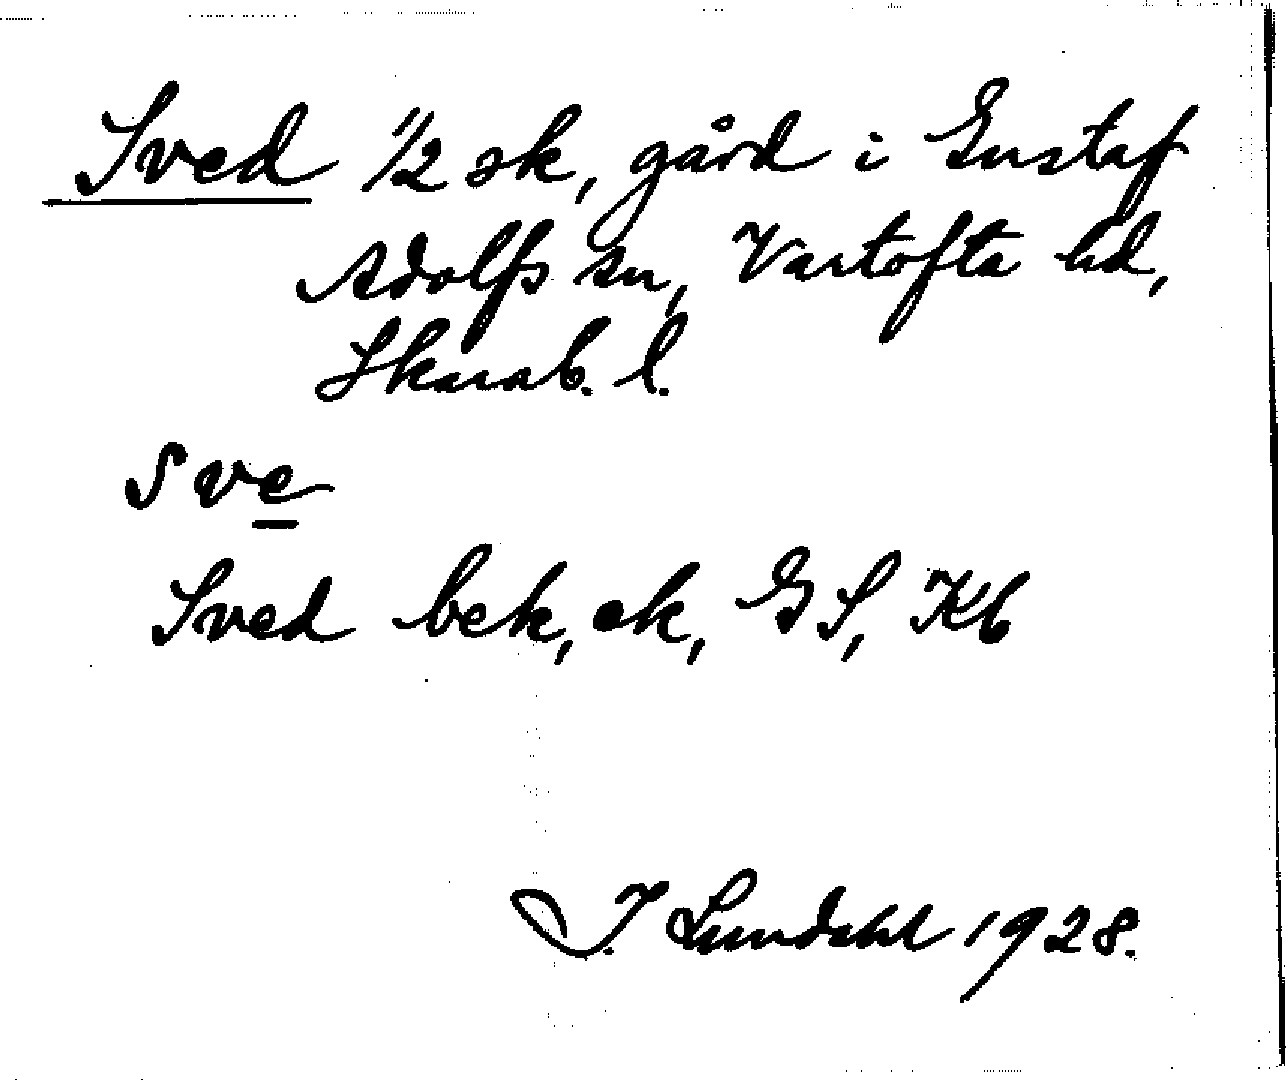 Sved 1/2 sk, gård i Gustaf
Adolfs sn, Vartofta hd,
Skarab. l.
Sve
Sved bek, ek, GS, Kb
I. Lundahl 1928.